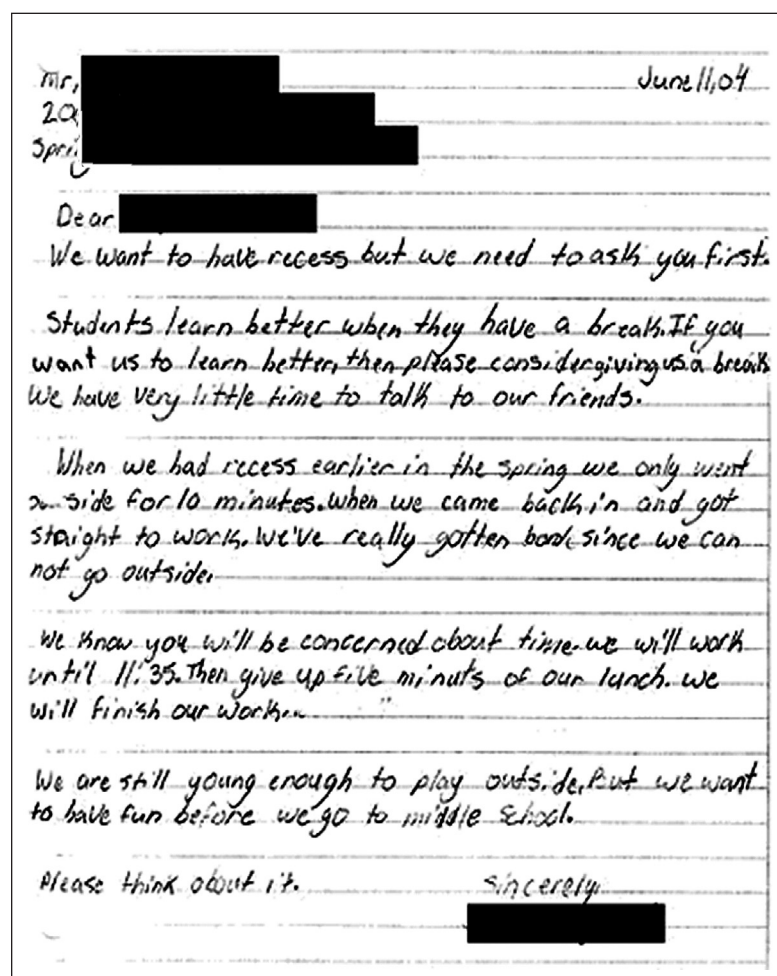 Mr,
June 11, 04
20
Spri
Dear
We want to have recess but we need to ask you first.
Students learn better when they have a break. If you
want us to learn better, then please consider giving us a break
We have very little time to talk to our friends.
When we had recess earlier in the spring we only went
side for 10 minutes. When we came back in and got
staight to work. We've really gotten since we can
not go outside.
We know you will be concerned about time. we will work
until 11:35. Then give up five minuts of our lunch. we
will finish our work.
We are still young enough to play outside, But we want
to have fun before we go to middle school.
Please think about it.
Sincerely,